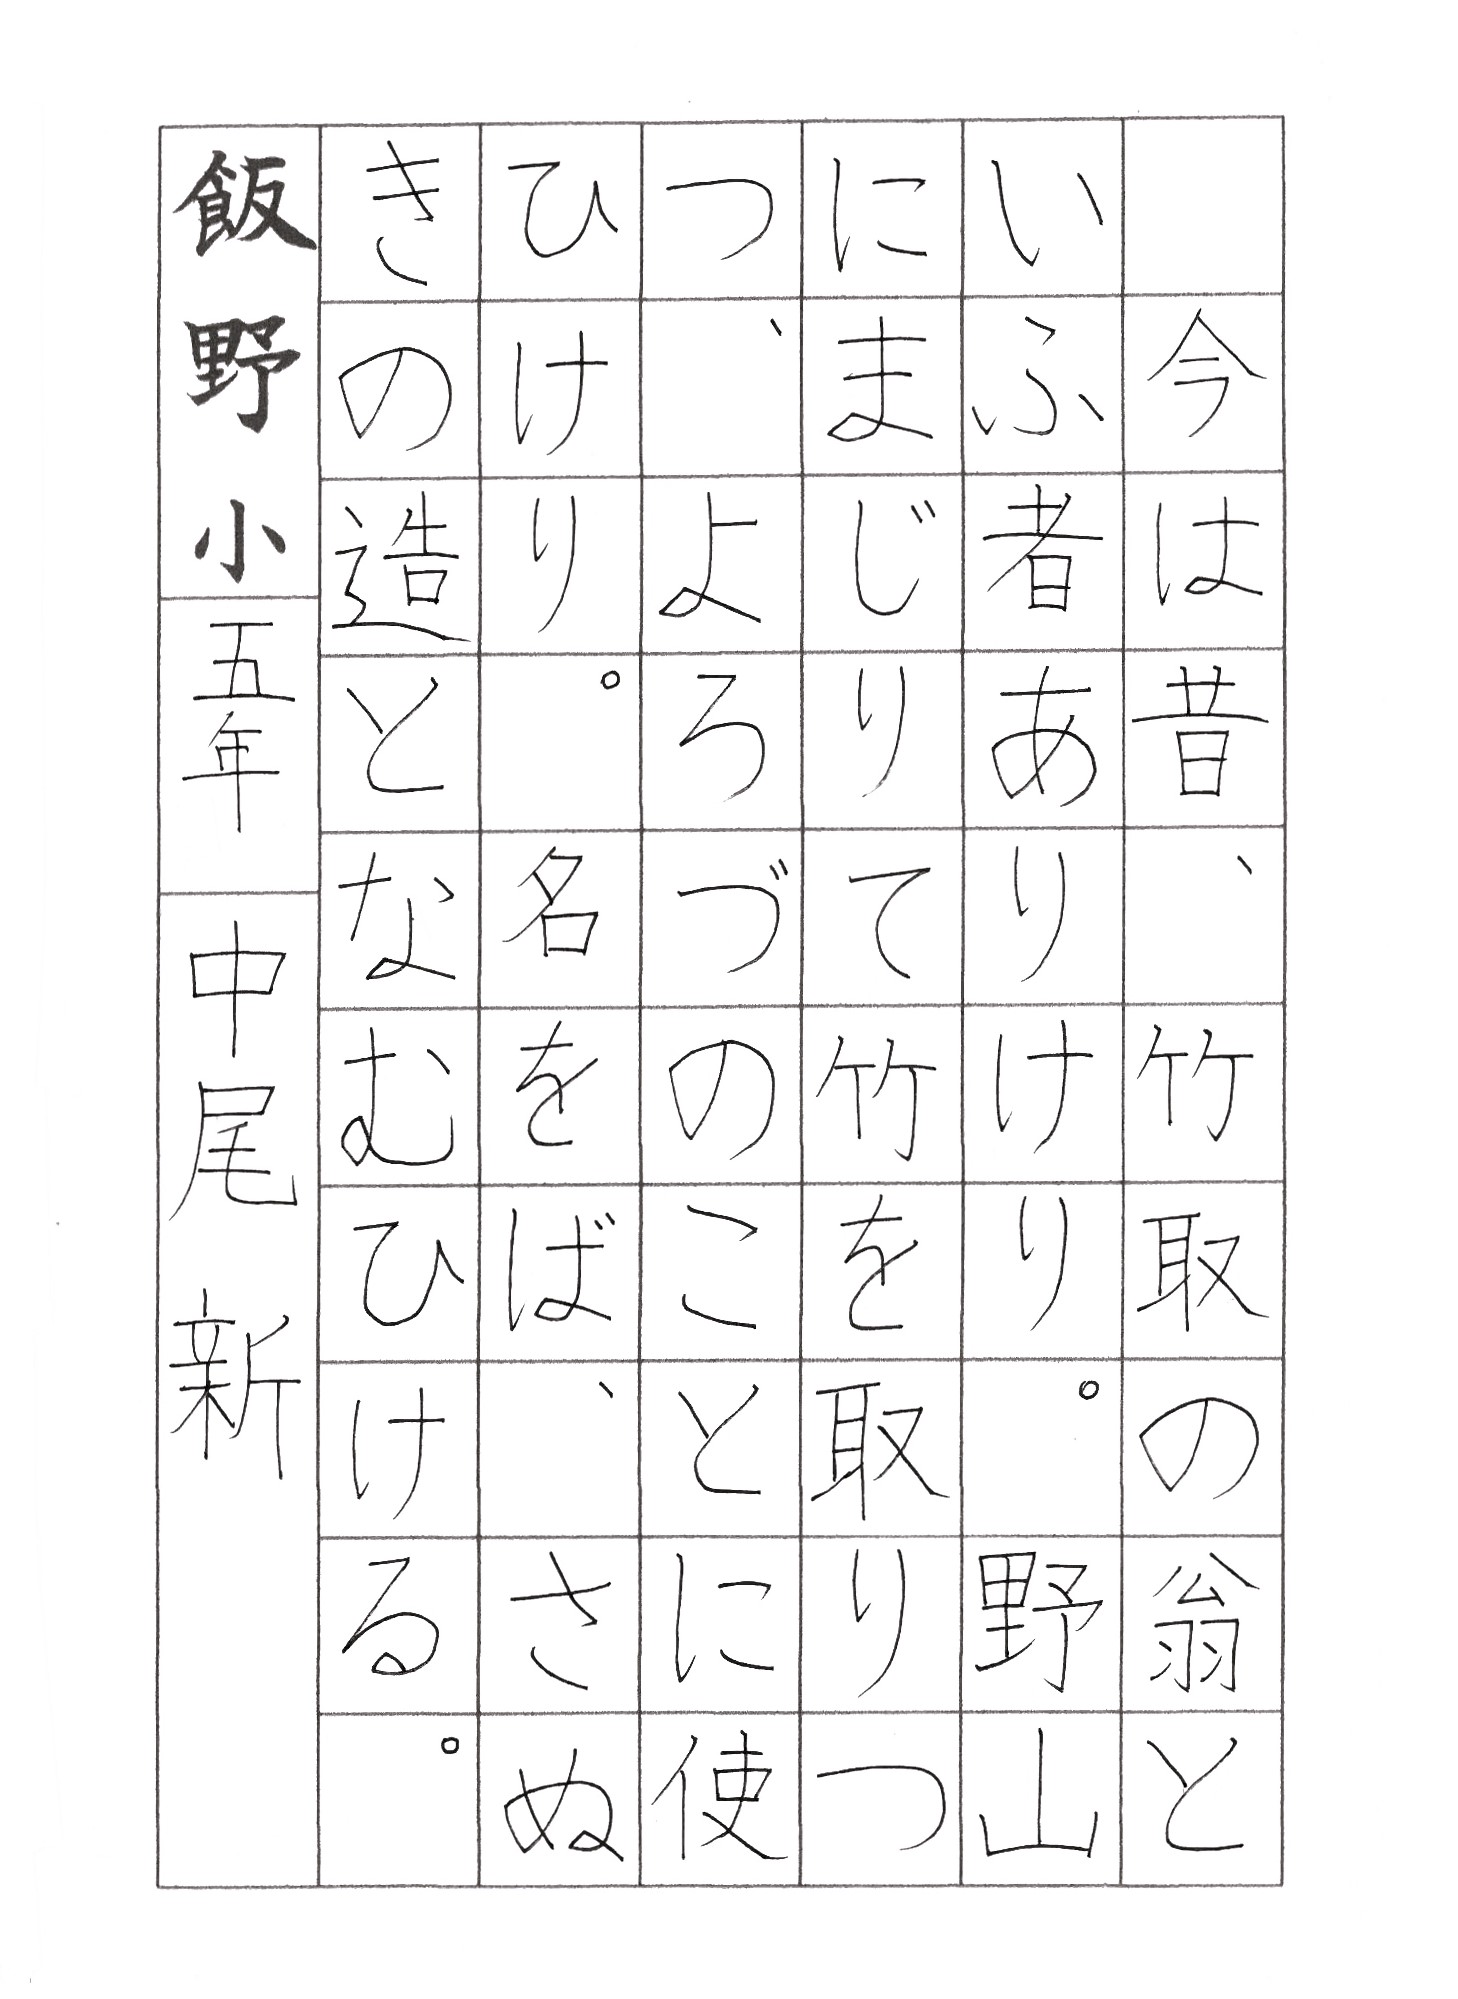 今は昔、竹取の翁と
いふ者ありけり。野山
にまじりて竹を取りつ
つ、よろづのことに使
ひけり。名をば、さぬ
きの造となむひける。
飯野小 五年 中尾 新